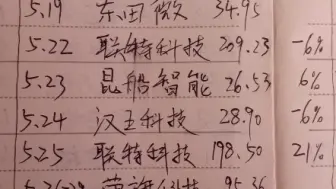 5.19 东田微 34.95
5.22 联特科技 209.23 -6%
5.23 昆船智能 26.53 6%
5.24 汉王科技 28.90 -6%
5.25 联特科技 198.50 21%
科技 95.36